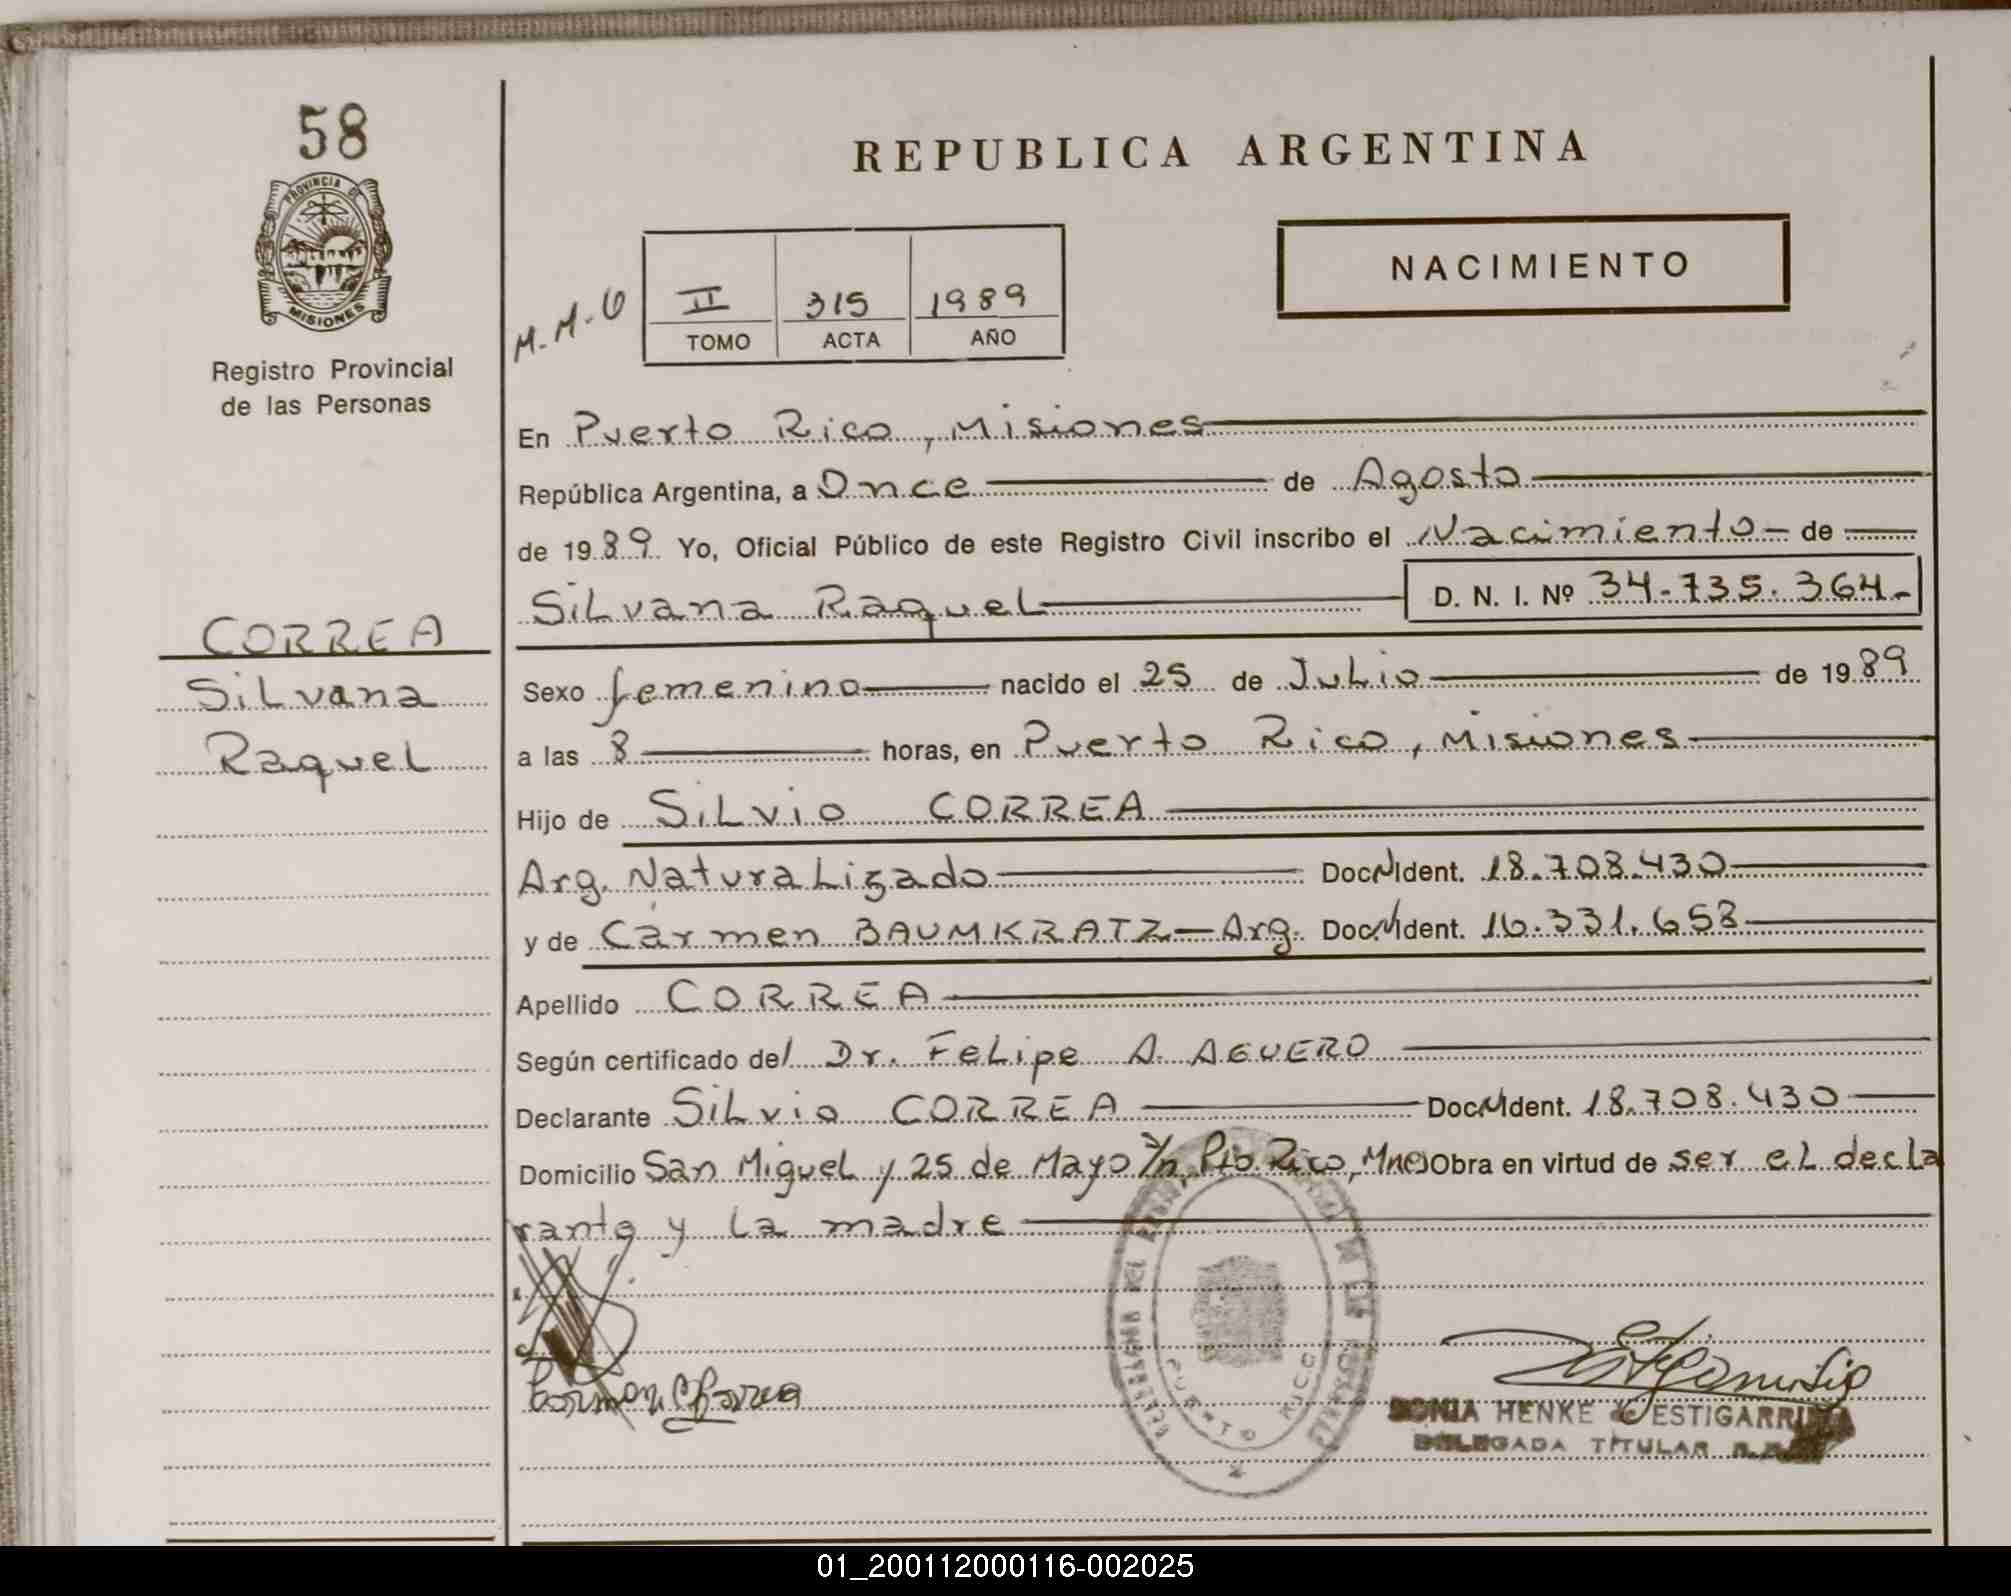 58
PROVINCIA DE
MISIONES
Registro Provincial
de las Personas
CORREA
Silvana
Raquel
REPUBLICA ARGENTINA
NACIMIENTO
M.M.G
II 315 1989
TOMO ACTA AÑO
En Puerto Rico, Misiones
República Argentina, a Once de Agosto
de 1989 Yo, Oficial Público de este Registro Civil inscribo el Nacimiento de
Silvana Raquel D. N. I. Nº 34.735.364.-
Sexo femenino nacido el 25 de Julio de 1989
a las 8 horas, en Puerto Rico, Misiones
Hijo de Silvio CORREA
Arg. Naturalizado Doc. Ident. 18.708.430
y de Carmen BAUMKRATZ - Arg. Doc. Ident. 16.331.658
Apellido CORREA
Según certificado del Dr. Felipe A. AGUERO
Declarante Silvio CORREA Doc. Ident. 18.708.430
Domicilio San Miguel y 25 de Mayo s/n, Pto Rico, Mnes Obra en virtud de ser el decla
rante y la madre
PUERTO RICO
SONIA HENKE de ESTIGARRIBIA
DELEGADA TITULAR
01_200112000116-002025